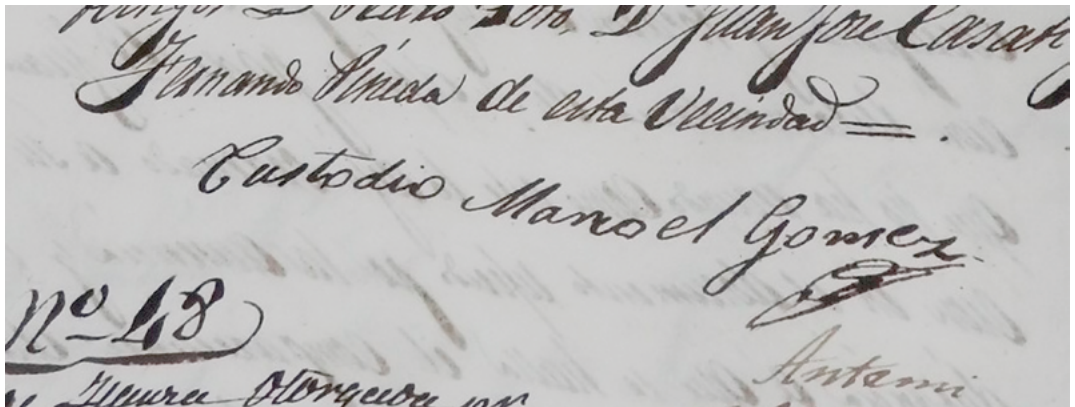 Juan Jose Casas
Fernando Pineda de esta Vecindad =.
Custodio Manoel Gomez
Nº 48
Antemi
otorgada por